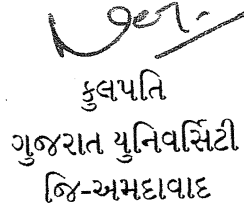 કુલપતિ
ગુજરાત યુનિવર્સિટી
જિ-અમદાવાદ